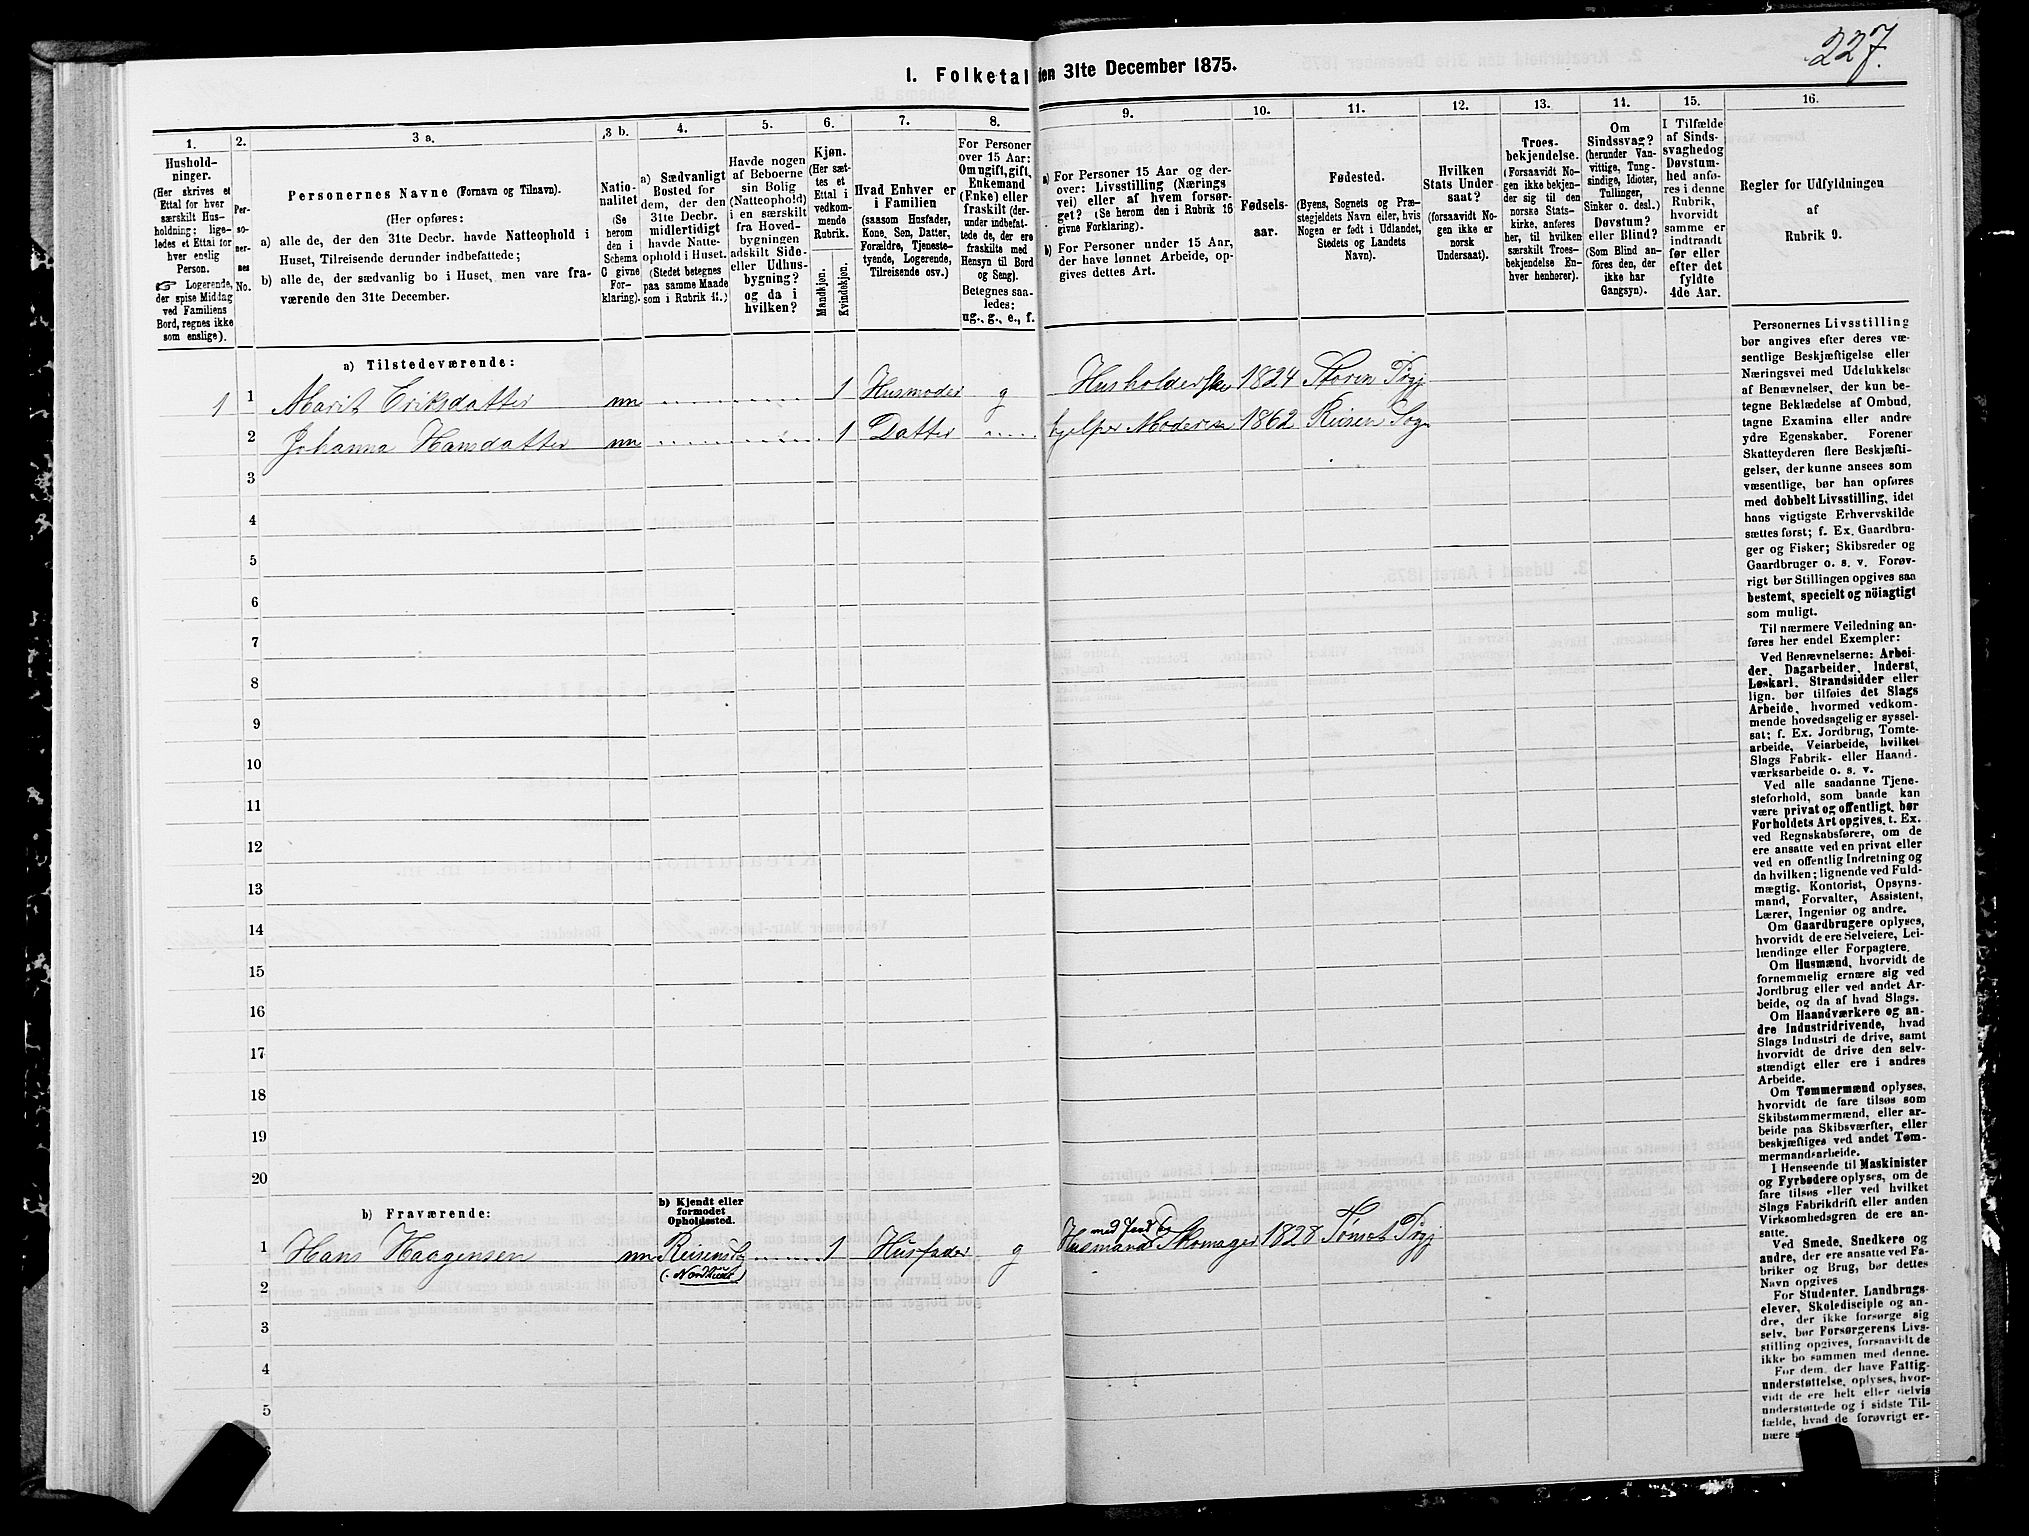 227.
I. Folketal den 31te December 1875.
1.
Hushold-
ninger.
(Her skrives et
Ettal for hver
særskilt Hus-
holdning; lige-
ledes et Ettal for
hver enslig
Person.
☞ Logerende,
der spise Middag
ved Familiens
Bord, regnes ikke
som enslige).
2.
Per-
so-
ner-
nes
No.
3 a.
Personernes Navne (Fornavn og Tilnavn).
(Her opføres:
a) alle de, der den 31te Decbr. havde Natteophold i
Huset, Tilreisende derunder indbefattede;
b) alle de, der sædvanlig bo i Huset, men vare fra-
værende den 31te December.
3 b.
Natio-
nalitet
(Se
herom
den i
Schema
C givne
For-
klaring).
4.
a) Sædvanligt
Bosted for
dem, der den
31te Decbr.
midlertidigt
havde Natte-
ophold i Huset.
(Stedet betegnes
paa samme Maade
som i Rubrik 11.)
5.
Havde nogen
af Beboerne
sin Bolig
(Natteophold)
i en særskilt
fra Hoved-
bygningen
adskilt Side-
eller Udhus-
bygning?
og da i
hvilken?
6.
Kjøn.
(Her sæt-
tes et
Ettal i
vedkom-
mende
Rubrik.
Mandkjøn.
Kvindekjøn.
7.
Hvad Enhver er
i Familien
(saasom Husfader,
Kone, Søn, Datter,
Forældre, Tjeneste-
tyende, Logerende,
Tilreisende osv.)
8.
For Personer
over 15 Aar:
Om ugift, gift,
Enkemand
(Enke) eller
fraskilt (der-
under indbefat-
tede de, der ere
fraskilte med
Hensyn til Bord
og Seng).
Betegnes saa-
ledes:
ug., g., e., f.
9.
a) For Personer 15 Aar og der-
over: Livsstilling (Nærings
vei) eller af hvem forsør-
get? (Se herom den i Rubrik 16
givne Forklaring).
b) For Personer under 15 Aar,
der have lønnet Arbeide, op-
gives dettes Art.
10.
Fødsels-
aar.
11.
Fødested.
(Byens, Sognets og Præ-
stegjeldets Navn eller, hvis
Nogen er født i Udlandet,
Stedets og Landets
Navn).
12.
Hvilken
Stats Under-
saat?
(forsaavidt No-
gen ikke er
norsk
Undersaat).
13.
Troes-
bekjendelse.
(Forsaavidt No-
gen ikke bekjen-
der sig til den
norske Stats-
kirke, anføres
her, til hvilken
særskilt Troes-
bekjendelse En-
hver henhører).
14.
Om
Sindssvag?
(herunder Van-
vittige, Tung-
sindige, Idioter,
Tullinger,
Sinker o. desl.)
Døvstum?
eller Blind?
(Som Blind an-
føres den, der
ikke har
Gangsyn).
15.
I Tilfælde
af Sinds-
svaghed og
Døvstum-
hed anfø-
res i denne
Rubrik,
hvorvidt
samme er
indtraadt
før eller
efter det
fyldte
4de Aar.
16.
Regler for Udfyldningen
af
Rubrik 9.
a) Tilstedeværende:
1 1 Marit Eriksdatter nn 1 Husmoder g Husholderske 1824 Storen Prgj
2 Johanna Hansdatter nn 1 Datter hjelper Moderen 1862 Reisen Sogn
3
4
5
6
7
8
9
10
11
12
13
14
15
16
17
18
19
20
b) Fraværende:
b) Kjendt eller
formodet
Opholdssted.
med Jord og
1 Hans Haagensen nn Reisensg 1 Husfader g Husmand Skomager 1828 Tønset Prgj
2
3
4
5
Personernes Livsstilling
bør angives efter deres væ-
sentlige Beskjæftigelse eller
Næringsvei med Udelukkelse
af Benævnelser, der kun be-
tegne Beklædelse af Ombud,
tagne Examina eller andre
ydre Egenskaber. Forener
Skatteyderen flere Beskjæfti-
gelser, der kunne ansees som
væsentlige, bør han opføres
med dobbelt Livsstilling, idet
hans vigtigste Erhvervskilde
sættes først; f. Ex. Gaardbru-
ger og Fisker; Skibsreder og
Gaardbruger o. s. v. Forøv-
rigt bør Stillingen opgives saa
bestemt, specielt og nöiagtigt
som muligt.
Til nærmere Veiledning an-
føres her endel Exempler:
Ved Benævnelserne: Arbei-
der, Dagarbeider, Inderst,
Løskarl, Strandsidder eller
lign. bør tilføies det Slags
Arbeide, hvormed vedkom-
mende hovedsagelig er syssel-
sat; f. Ex. Jordbrug, Tomte-
arbeide, Veiarbeide, hvilket
Slags Fabrik- eller Haand-
værksarbeide o. s. v.
Ved alle saadanne Tjene-
steforhold, som baade kan
være privat og offentligt, bør
Forholdets Art opgives, t. Ex.
ved Regnskabsførere, om de
ere ansatte ved en privat eller
ved en offentlig Indretning og
da hvilken; lignende ved Fuld-
mægtig, Kontorist, Opsyns-
mand, Forvalter, Assistent,
Lærer, Ingeniør og andre.
Om Gaardbrugere oplyses,
hvorvidt de ere Selveiere, Lei-
lændinge eller Forpagtere.
Om Husmænd, hvorvidt de
fornemmelig ernære sig ved
Jordbrug eller ved andet Ar-
beide, og da af hvad Slags.
Om Haandværkere og an-
dre Industridrivende, hvad
Slags Industri de drive, samt
hvorvidt de drive den selv-
stændigt eller ere i andres
Arbeide.
Om Tømmermænd oplyses,
hvorvidt de fare tilsøs som
Skibstømmermænd, eller ar-
beide paa Skibsværfter, eller
beskjæftiges ved andet Tøm-
mermandsarbeide.
I Henseende til Maskinister
og Fyrbødere oplyses, om de
fare tilsøs eller ved hvilket
Slags Fabrikdrift eller anden
Virksomhedsgren de ere an-
satte.
Ved Smede, Snedkere og
andre, der ere ansatte ved Fa-
briker og Brug, bør dettes
Navn opgives
For Studenter, Landbrugs-
elever, Skoledisciple og an-
dre, der ikke forsørge sig
selv, bør Forsørgerens Livs-
stilling opgives, forsaavidt de
ikke bo sammen med denne.
For dem, der have Fattig-
understøttelse, oplyses, hvor-
vidt de ere helt eller delvis
understøttede og i sidste Til-
fælde, hvad de forøvrigt er-
nære